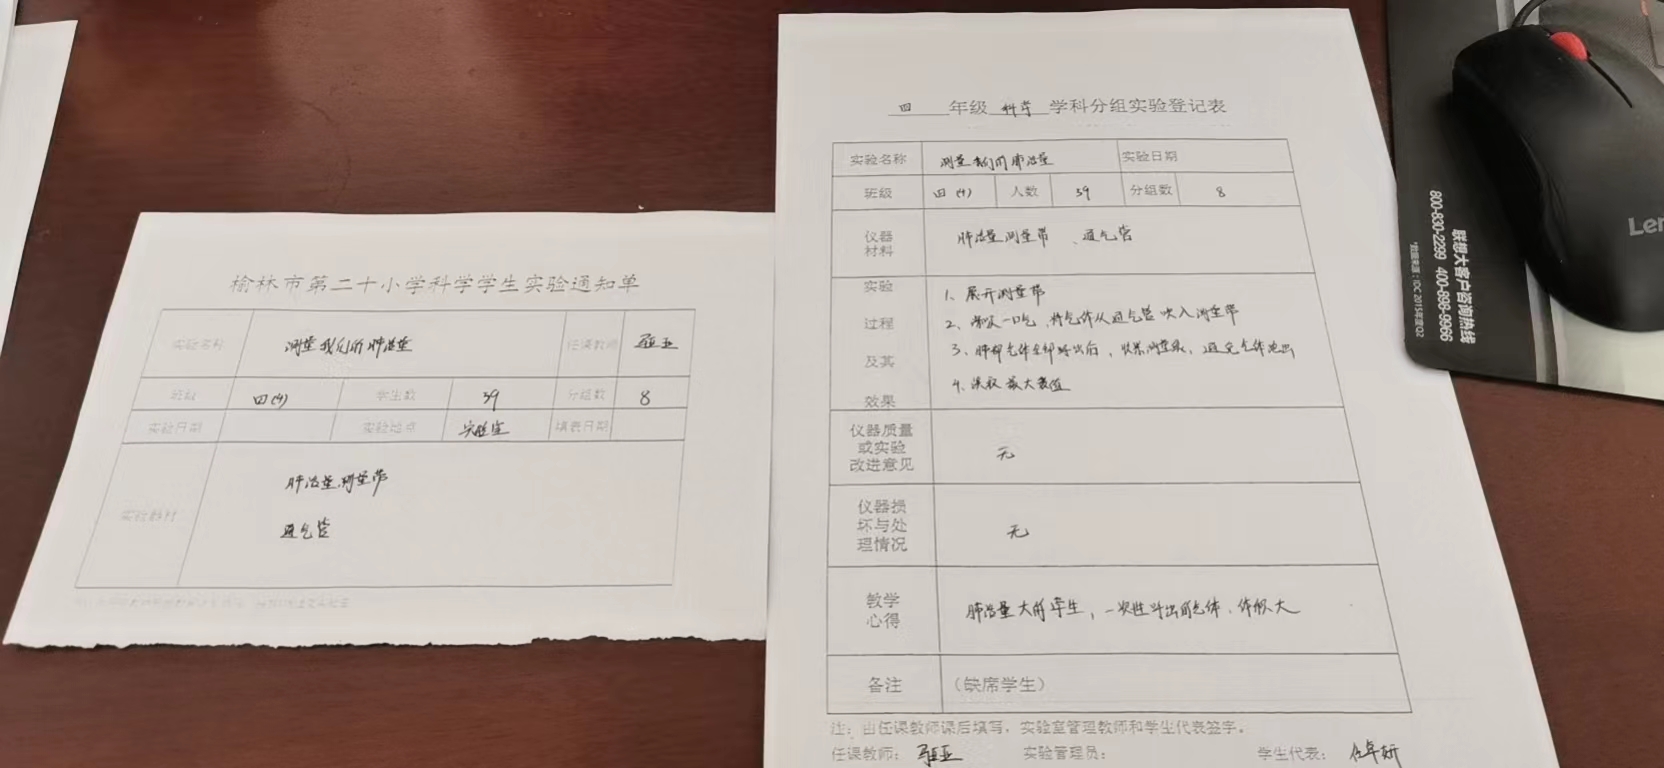 榆林市第二十小学科学学生实验通知单
实验名称 测量我们的肺活量 任课教师
班级 四(4) 学生数 39 分组数 8
实验日期 实验地点 实验室 填表日期
实验器材
肺活量测量带
通气管
四 年级 科学 学科分组实验登记表
实验名称 测量我们的肺活量 实验日期
班级 四(4) 人数 39 分组数 8
仪器材料 肺活量测量带、通气管
实验过程及其效果
1、展开测量带
2、深吸一口气,将气体从通气管吹入测量带
3、肺部气体全部呼出后,避免气体泄出
4、读取最大数值
仪器质量
或实验
改进意见
无
仪器损
坏与处
理情况
无
教学
心得
肺活量大的学生,一次性呼出的气体,体积大
备注 (缺席学生)
注:由任课教师课后填写,实验室管理教师和学生代表签字。
任课教师: 实验管理员: 学生代表:
Len
联想大客户咨询热线
800-830-2299 400-898-9966
*数据来源:IDC 2015年度Q2